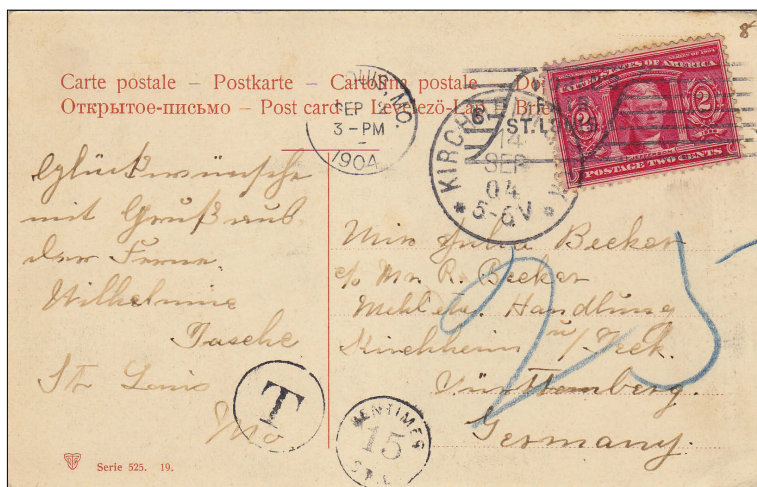 8
Carte postale – Postkarte – Cartolina postale –
Открытое-письмо – Post card – Levelező-Lap
MO.
SEP
3-PM
1904
KIRCH
14
SEP
04
5-6V
ST. LOUIS
UNITED STATES OF AMERICA
2 2
POSTAGE TWO CENTS
Glückwünsche
mit Gruß aus
der Ferne.
Wilhelmine
Tasche
St. Louis
Mo
Miss Julia Becker
c/o Mr. R. Becker
Mehl Handlung
Kirchheim u/ Teck.
Württemberg.
Germany.
25
T
CENTIMES
15
Serie 525. 19.